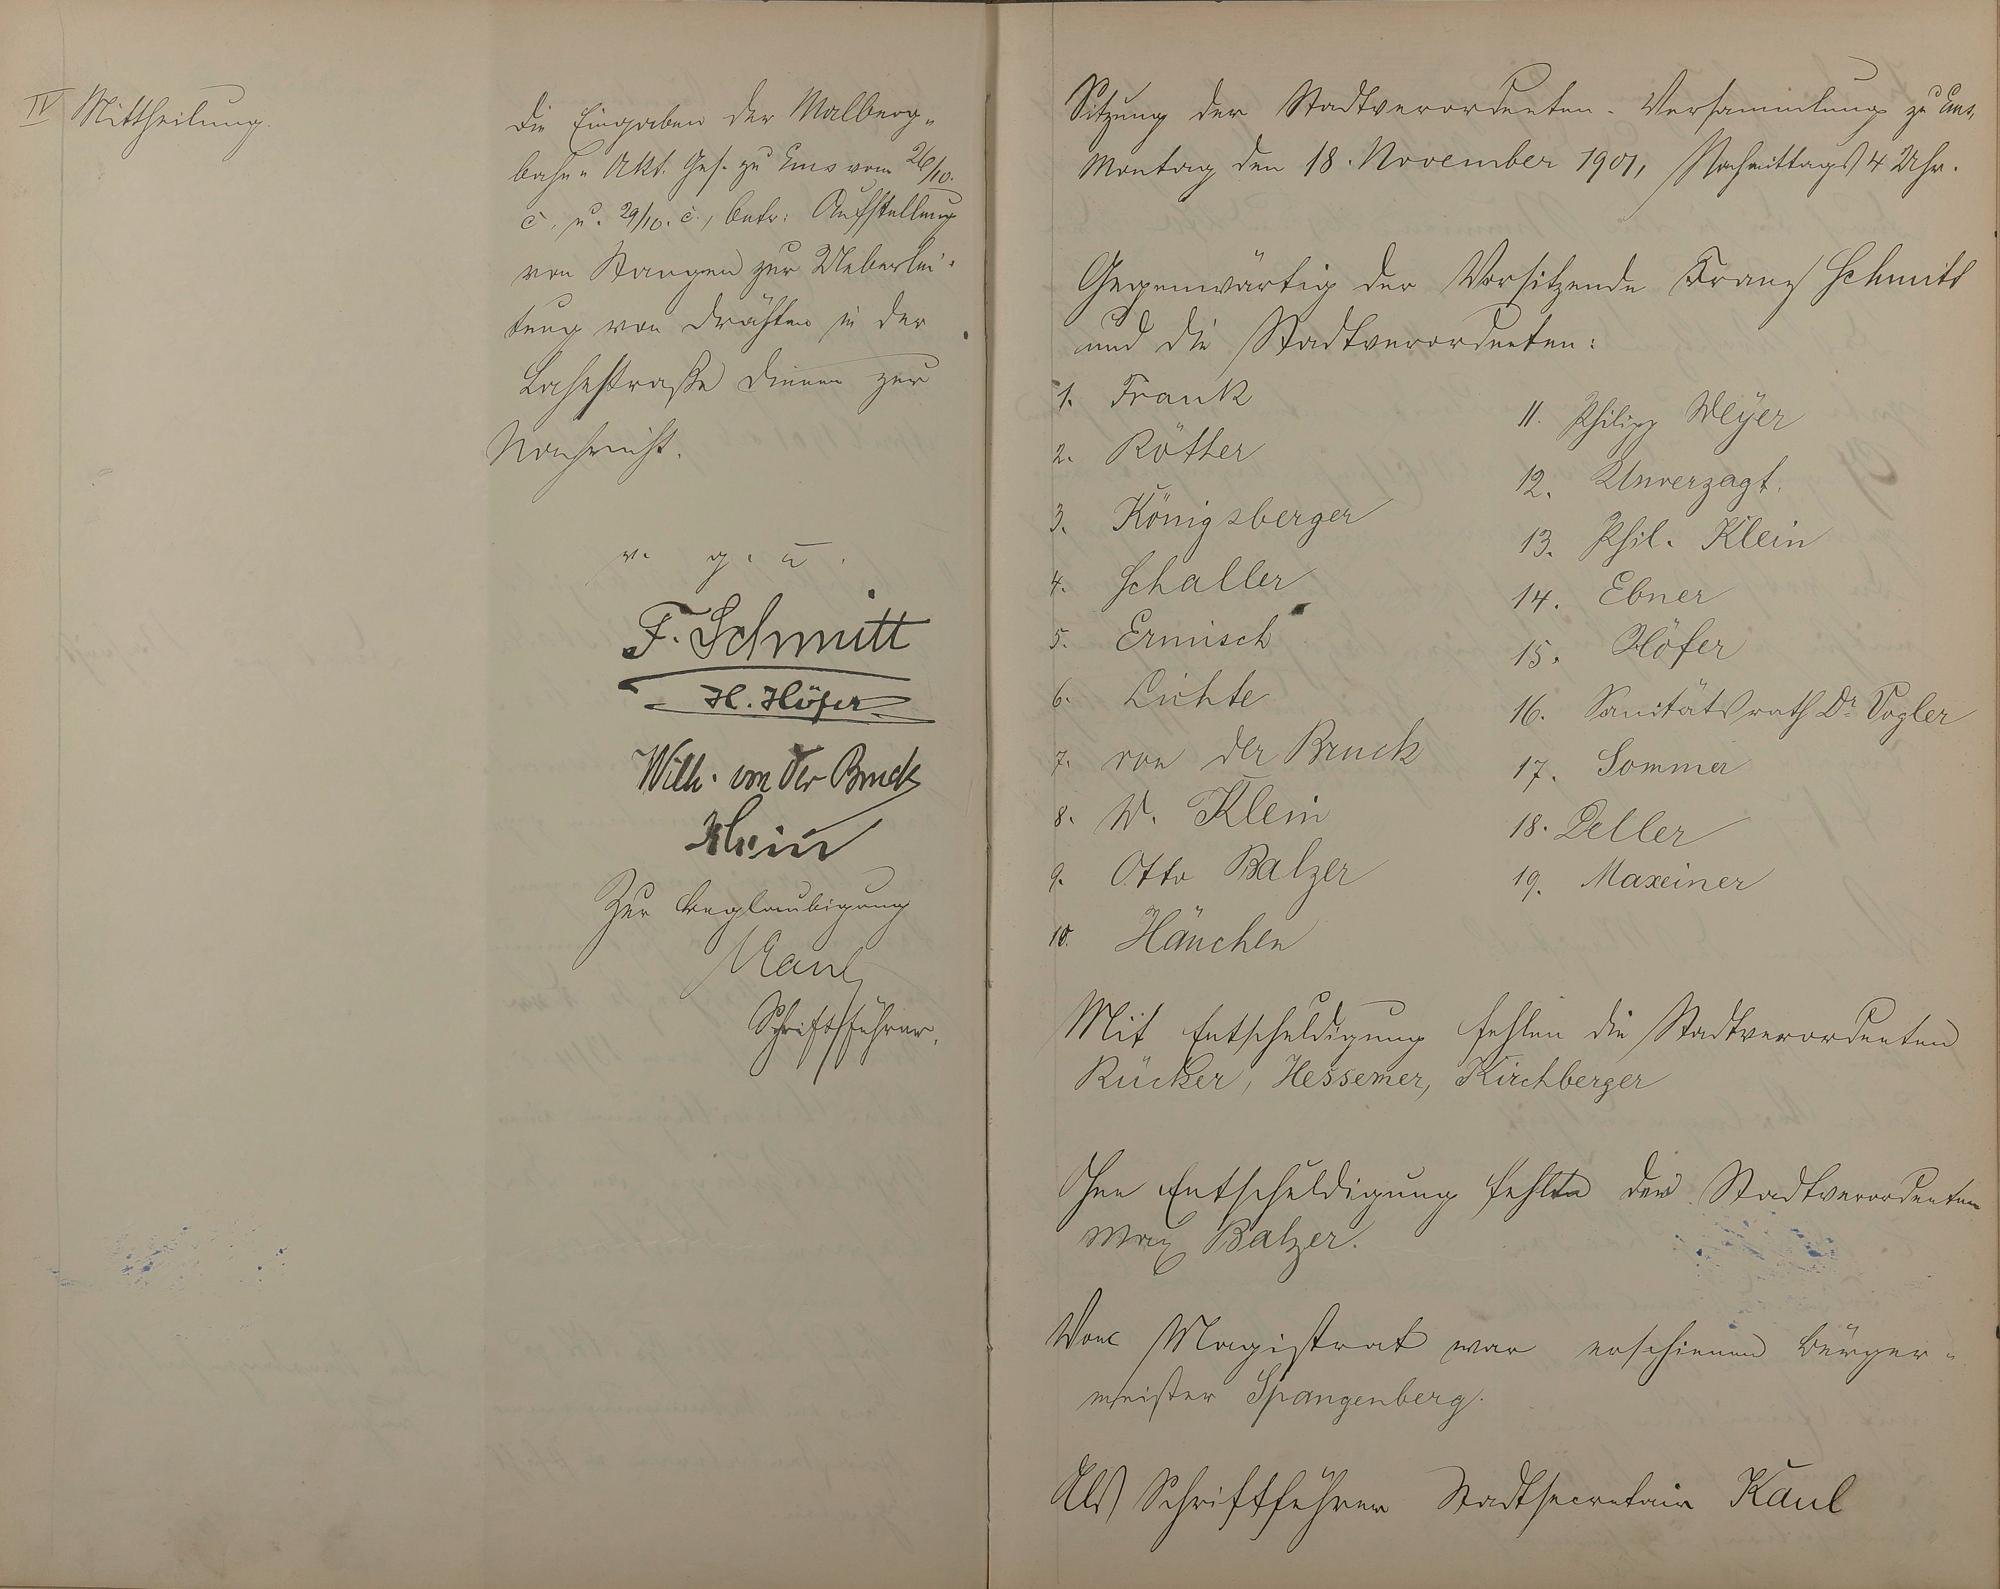 IV Mittheilung.
Die Eingaben der Malberg-
bahn-Akt. Ges. zu Ems vom 26/10.
c. u. 29/10. c., betr: Aufstellung
von Stangen zur Ueberlei-
tung von Drähten in der
Lahnstraße dienen zur
Nachricht.
v. g. u.
F. Schmitt
H. Höfer
Wilh. von der Bruck
Klein
Zur Beglaubigung
Kaul
Schriftführer.
Sitzung der Stadtverordneten-Versammlung zu Ems,
Montag den 18. November 1901, Nachmittags 4 Uhr.
Gegenwärtig der Vorsitzende Franz Schmitt
und die Stadtverordneten:
1. Frank
2. Röther
3. Königsberger
4. Schaller
5. Ermisch
6. Lichte
7. von der Bruck
8. W. Klein
9. Otto Balzer
10. Hänchen
11. Philipp Meyer
12. Unverzagt.
13. Phil. Klein
14. Ebner
15. Höfer
16. Sanitätsrath Dr Vogler
17. Sommer
18. Deller
19. Maxeiner
Mit Entschuldigung fehlen die Stadtverordneten
Rücker, Hessemer, Kirchberger
Ohne Entschuldigung fehlte der Stadtverordneten
Max Balzer.
Vom Magistrat war erschienen Bürger-
meister Spangenberg.
Als Schriftführer Stadtsecretair Kaul